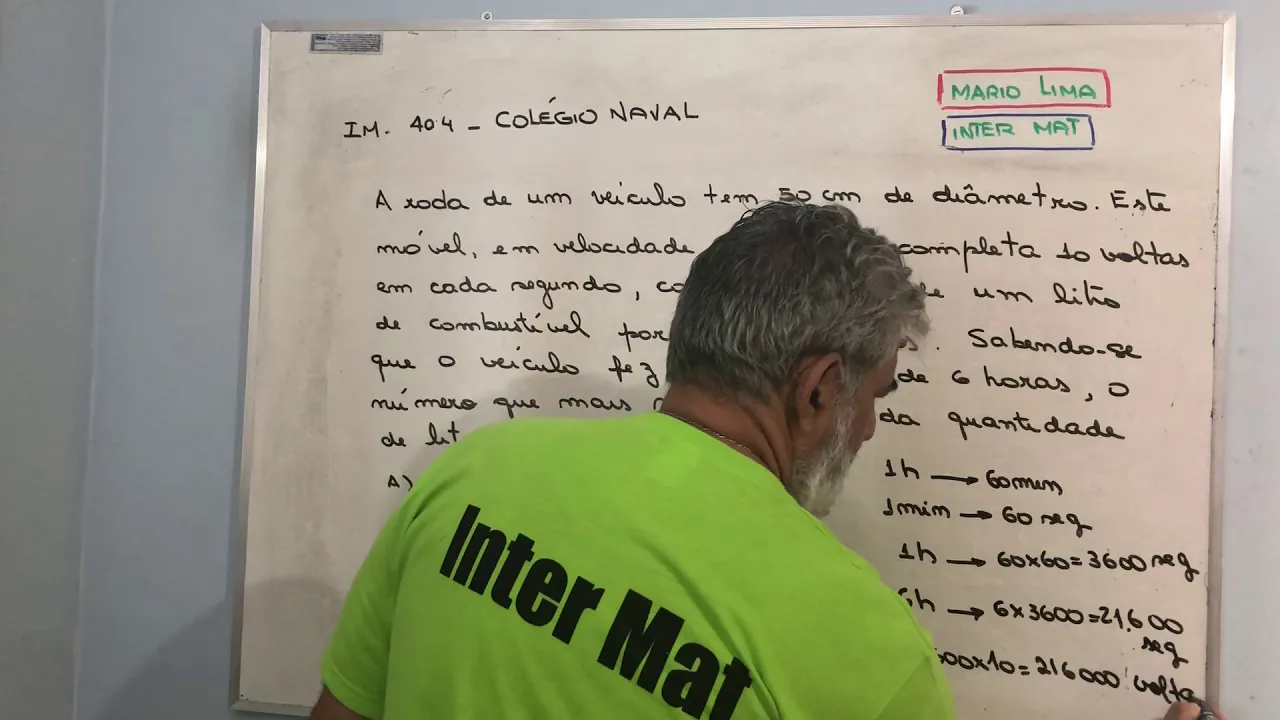 MARIO LIMA
INTER MAT
IM. 404 - COLÉGIO NAVAL
A roda de um veículo tem 50 cm de diâmetro. Este
móvel, em velocidade completa 10 voltas
em cada segundo, um litro
de combustível por . Sabendo-se
que o veículo fez de 6 horas, o
número que mais quantidade
de
A)
1h → 60 min
1 min → 60 seg
1h → 60x60=3600 seg
6h → 6x3600=21.600
seg
600x10=216000 volta
Inter Mat